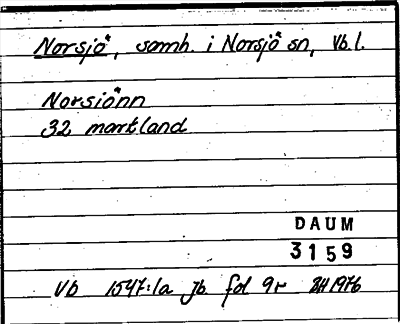 Norsjö, samh. i Norsjö sn, Vb.l.
Norsiönn
32 markland
DAUM
3159
VB 1547:1a jb fol 9r BH 1976